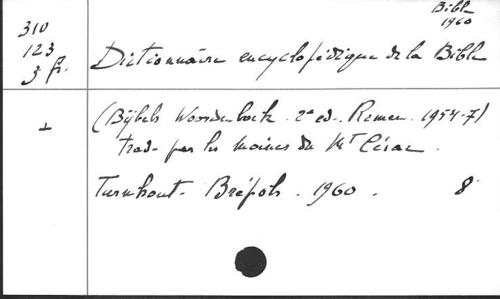 Bible
1960
310
123
3 fr.
Dictionnaire encyclopédique de la Bible
(Bijbels Woordenboek. 2e ed. Roermon. 1954-7)
trad. par les moines du Mt César.
Turnhout. Brépols. 1960. 8°